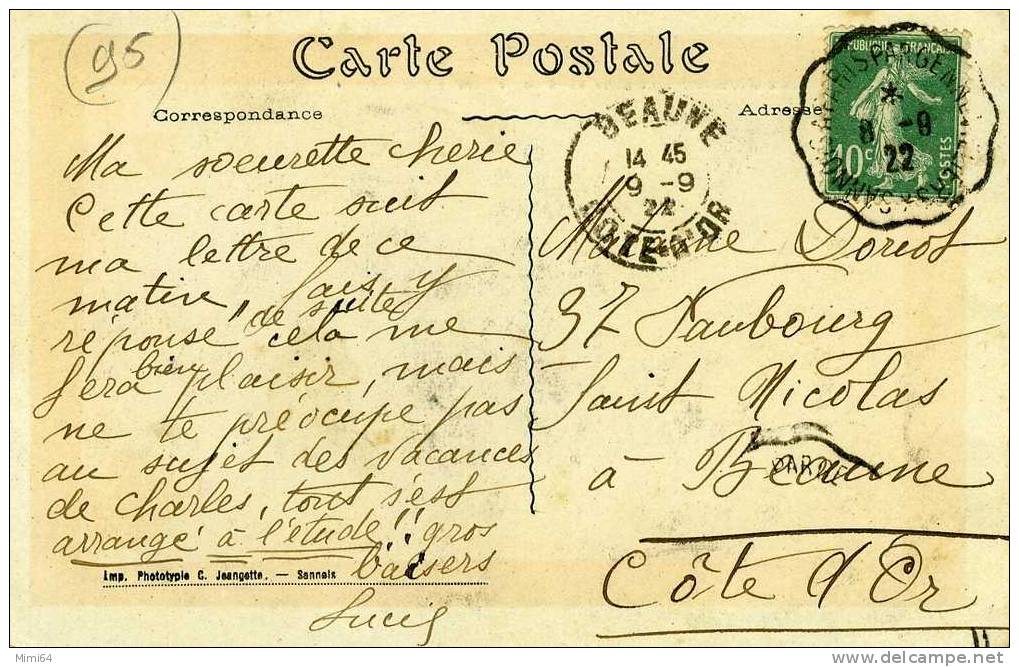 (95)
Carte Postale
Correspondance
Adresse
REPUBLIQUE FRANCAISE
10c
POSTES
8 -9
22
BEAUNE
14 45
9 -9
22
COTE-D'OR
Ma soeurette cherie
Cette carte suit
ma lettre de ce
matin, fais y
réponse de suite
cela me
fera bien plaisir, mais
ne te préocupe pas
au sujet des vacances
de Charles, tout s'est
arrangé à l'étude!! gros
baisers
Imp. Phototypie C. Jeangette. — Sannois
Madame Doriot
37 Faubourg
Saint Nicolas
à Beaune
Côte d'Or
Mimi64